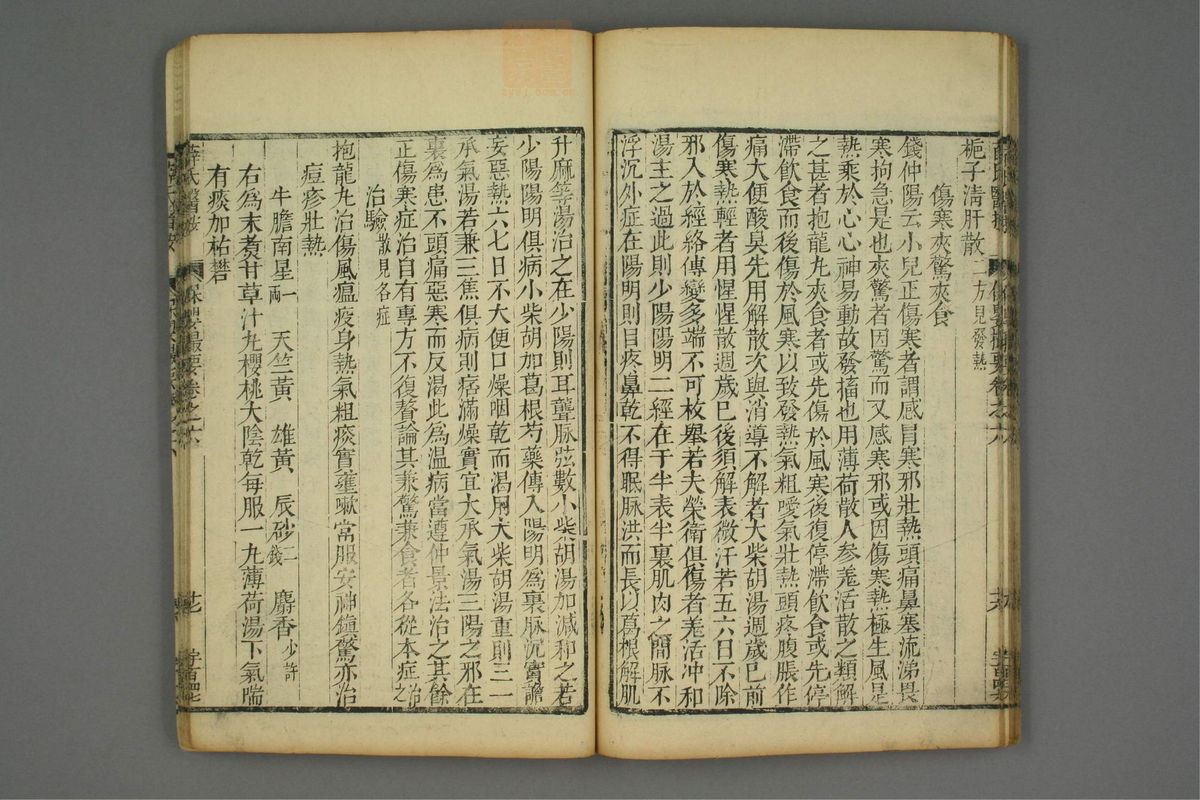 梔子淸肝散二方見發熱
傷寒夾驚夾食
錢仲陽云小兒正傷寒者謂感冒寒邪壯熱頭痛鼻塞流涕畏
寒拘急是也夾驚者因驚而又感寒邪或因傷寒熱極生風是
熱乘於心心神易動故發搐也用薄荷散人參羗活散之類解
之甚者抱龍丸夾食者或先傷於風寒後復停滯飮食或先停
滯飮食而後傷於風寒以致發熱氣粗噯氣壯熱頭疼腹脹作
痛大便酸臭先用解散次與消導不解者大柴胡湯週歲已前
傷寒熱輕者用惺惺散週歲已後須解表微汗若五六日不除
邪入於經絡傳變多端不可枚舉若夫榮衛俱傷者羗活冲和
湯主之過此則少陽陽明二經在于半表半裏肌肉之間脉不
浮沉外症在陽明則目疼鼻乾不得眠脉洪而長以葛根解肌
升麻等湯治之在少陽則耳聾脉弦數小柴胡湯加減和之若
少陽陽明俱病小柴胡加葛根芍藥傳入陽明爲裏脉沉實譫
妄惡熱六七日不大便口燥咽乾而渴用大柴胡湯重則三一
承氣湯若兼三焦俱病則痞滿燥實宜大承氣湯三陽之邪在
裏爲患不頭痛惡寒而反渴此爲温病當遵仲景法治之其餘
正傷寒症治自有專方不復贅論其兼驚兼食者各從本症治之
治驗散見各症
抱龍丸治傷風瘟疫身熱氣粗痰實壅嗽常服安神鎮驚亦治
痘疹壯熱
牛膽南星一兩 天竺黃 雄黃 辰砂二錢 麝香少許
右爲末煑甘草汁丸櫻桃大陰乾每服一丸薄荷湯下氣喘
有痰加祐礬